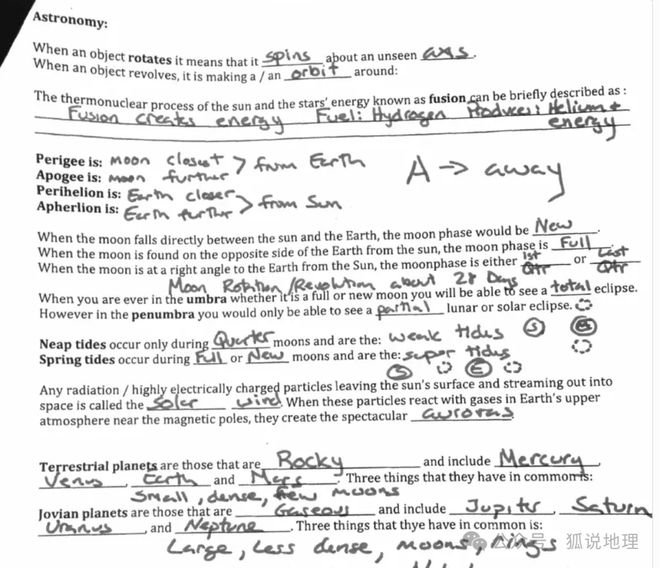 Astronomy:
When an object rotates it means that it spins about an unseen axis.
When an object revolves, it is making a / an orbit around:
The thermonuclear process of the sun and the stars' energy known as fusion can be briefly described as :
Fusion creates energy Fuel: Hydrogen Produces: Helium +
energy
Perigee is: Moon closest > from Earth
Apogee is: Moon further
A → away
Perihelion is: Earth closer > from Sun
Apherlion is: Earth further
When the moon falls directly between the sun and the Earth, the moon phase would be New.
When the moon is found on the opposite side of the Earth from the sun, the moon phase is Full.
When the moon is at a right angle to the Earth from the Sun, the moonphase is either 1st Qtr or Last Qtr
Moon Rotation/Revolution about 28 Days
When you are ever in the umbra whether it is a full or new moon you will be able to see a total eclipse.
However in the penumbra you would only be able to see a partial lunar or solar eclipse.
Neap tides occur only during Quarter moons and are the: weak tides S E
Spring tides occur during Full or New moons and are the: super tides
S E
Any radiation / highly electrically charged particles leaving the sun's surface and streaming out into
space is called the Solar wind. When these particles react with gases in Earth's upper
atmosphere near the magnetic poles, they create the spectacular auroras.
Terrestrial planets are those that are Rocky and include Mercury,
Venus, Earth and Mars. Three things that they have in common is:
Small, dense, few moons
Jovian planets are those that are Gaseous and include Jupiter, Saturn
Uranus, and Neptune. Three things that thye have in common is:
Large, Less dense, moons, rings
公众号 · 狐说地理